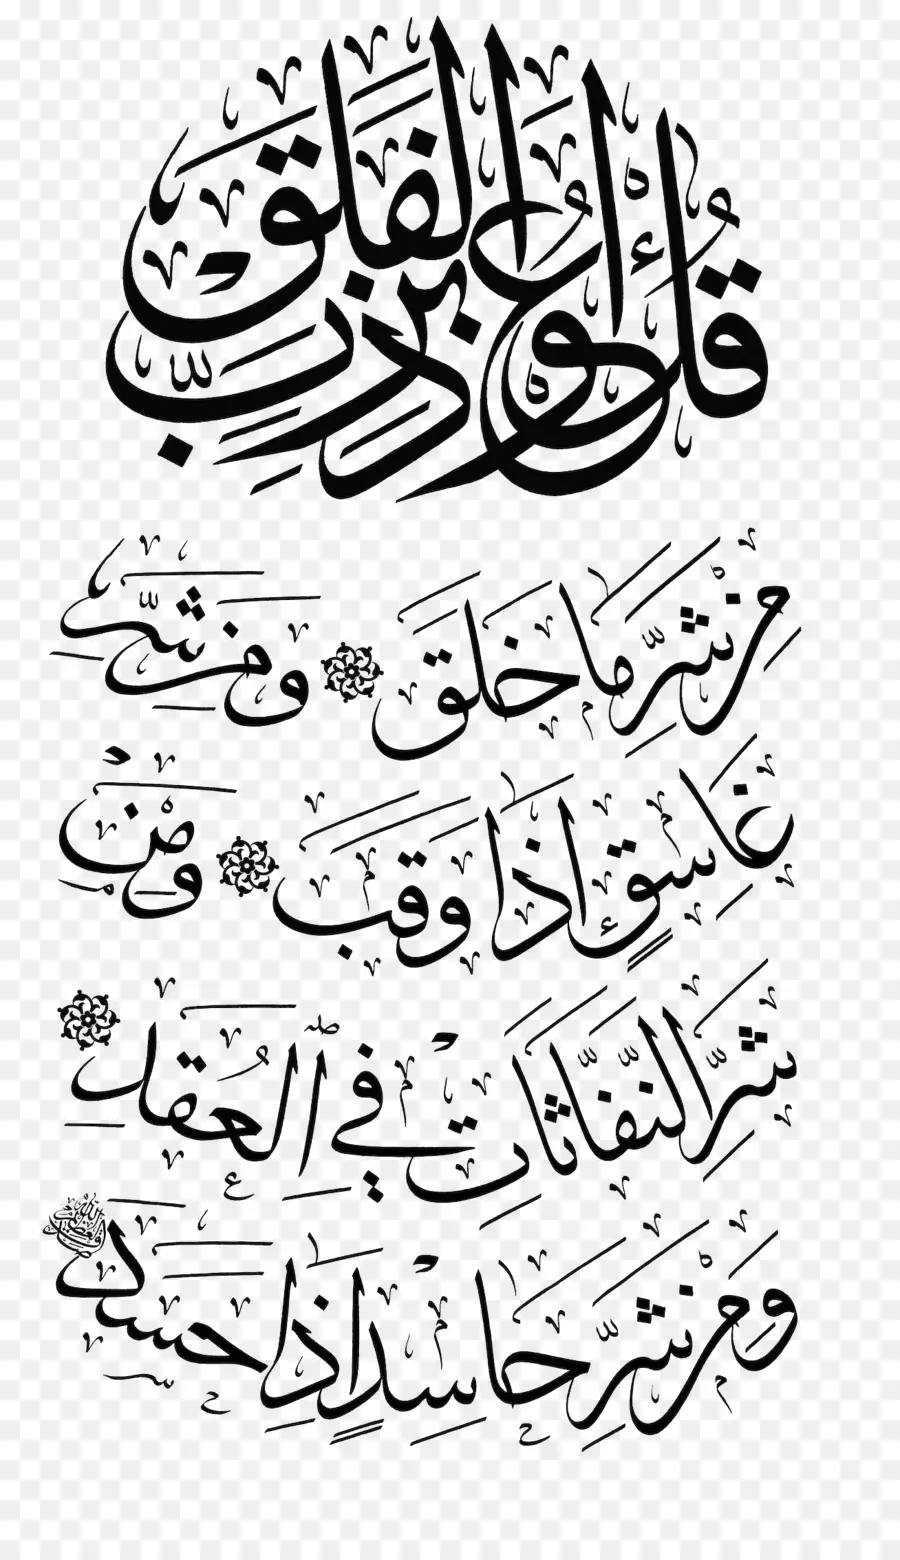 قُلْ أَعُوذُ بِرَبِّ الْفَلَقِ
مِنْ شَرِّ مَا خَلَقَ وَمِنْ شَرِّ
غَاسِقٍ إِذَا وَقَبَ وَمِنْ
شَرِّ النَّفَّاثَاتِ فِي الْعُقَدِ
وَمِنْ شَرِّ حَاسِدٍ إِذَا حَسَدَ